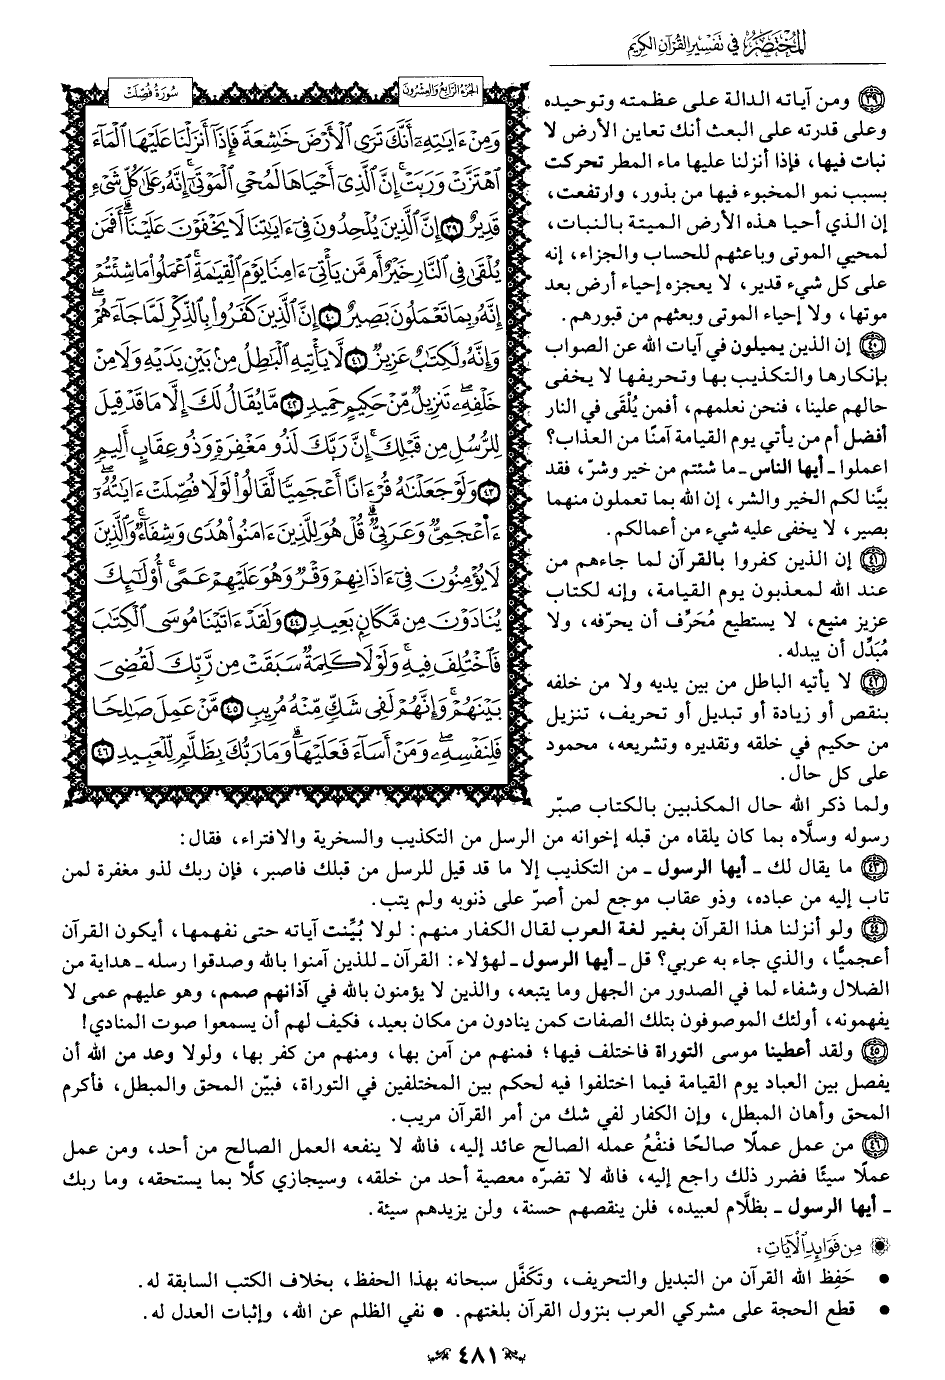 المُخْتَصَرُ في تَفْسِيرِ القُرْآنِ الكَرِيمِ
الجزء الرابع والعشرون
سُورَةُ فُصِّلَتْ
وَمِنْ ءَايَٰتِهِۦٓ أَنَّكَ تَرَى ٱلْأَرْضَ خَٰشِعَةً فَإِذَآ أَنزَلْنَا عَلَيْهَا ٱلْمَآءَ
ٱهْتَزَّتْ وَرَبَتْ ۚ إِنَّ ٱلَّذِىٓ أَحْيَاهَا لَمُحْىِ ٱلْمَوْتَىٰٓ ۚ إِنَّهُۥ عَلَىٰ كُلِّ شَىْءٍ
قَدِيرٌ ٣٩ إِنَّ ٱلَّذِينَ يُلْحِدُونَ فِىٓ ءَايَٰتِنَا لَا يَخْفَوْنَ عَلَيْنَآ ۗ أَفَمَن
يُلْقَىٰ فِى ٱلنَّارِ خَيْرٌ أَم مَّن يَأْتِىٓ ءَامِنًا يَوْمَ ٱلْقِيَٰمَةِ ۚ ٱعْمَلُوا۟ مَا شِئْتُمْ
إِنَّهُۥ بِمَا تَعْمَلُونَ بَصِيرٌ ٤٠ إِنَّ ٱلَّذِينَ كَفَرُوا۟ بِٱلذِّكْرِ لَمَّا جَآءَهُمْ ۖ
وَإِنَّهُۥ لَكِتَٰبٌ عَزِيزٌ ٤١ لَّا يَأْتِيهِ ٱلْبَٰطِلُ مِنۢ بَيْنِ يَدَيْهِ وَلَا مِنْ
خَلْفِهِۦ ۖ تَنزِيلٌ مِّنْ حَكِيمٍ حَمِيدٍ ٤٢ مَّا يُقَالُ لَكَ إِلَّا مَا قَدْ قِيلَ
لِلرُّسُلِ مِن قَبْلِكَ ۚ إِنَّ رَبَّكَ لَذُو مَغْفِرَةٍ وَذُو عِقَابٍ أَلِيمٍ
٤٣ وَلَوْ جَعَلْنَٰهُ قُرْءَانًا أَعْجَمِيًّا لَّقَالُوا۟ لَوْلَا فُصِّلَتْ ءَايَٰتُهُۥٓ ۖ
ءَا۬عْجَمِىٌّ وَعَرَبِىٌّ ۗ قُلْ هُوَ لِلَّذِينَ ءَامَنُوا۟ هُدًى وَشِفَآءٌ ۖ وَٱلَّذِينَ
لَا يُؤْمِنُونَ فِىٓ ءَاذَانِهِمْ وَقْرٌ وَهُوَ عَلَيْهِمْ عَمًى ۚ أُو۟لَٰٓئِكَ
يُنَادَوْنَ مِن مَّكَانٍۭ بَعِيدٍ ٤٤ وَلَقَدْ ءَاتَيْنَا مُوسَى ٱلْكِتَٰبَ
فَٱخْتُلِفَ فِيهِ ۗ وَلَوْلَا كَلِمَةٌ سَبَقَتْ مِن رَّبِّكَ لَقُضِىَ
بَيْنَهُمْ ۚ وَإِنَّهُمْ لَفِى شَكٍّ مِّنْهُ مُرِيبٍ ٤٥ مَّنْ عَمِلَ صَٰلِحًا
فَلِنَفْسِهِۦ ۖ وَمَنْ أَسَآءَ فَعَلَيْهَا ۗ وَمَا رَبُّكَ بِظَلَّٰمٍ لِّلْعَبِيدِ ٤٦
٣٩ ومن آياته الدالة على عظمته وتوحيده
وعلى قدرته على البعث أنك تعاين الأرض لا
نبات فيها، فإذا أنزلنا عليها ماء المطر تحركت
بسبب نمو المخبوء فيها من بذور، وارتفعت،
إن الذي أحيا هذه الأرض الميتة بالنبات،
لمحيي الموتى وباعثهم للحساب والجزاء، إنه
على كل شيء قدير، لا يعجزه إحياء أرض بعد
موتها، ولا إحياء الموتى وبعثهم من قبورهم.
٤٠ إن الذين يميلون في آيات الله عن الصواب
بإنكارها والتكذيب بها وتحريفها لا يخفى
حالهم علينا، فنحن نعلمهم، أفمن يُلْقَى في النار
أفضل أم من يأتي يوم القيامة آمنًا من العذاب؟
اعملوا ـ أيها الناس ـ ما شئتم من خير وشرّ، فقد
بيَّنا لكم الخير والشر، إن الله بما تعملون منهما
بصير، لا يخفى عليه شيء من أعمالكم.
٤١ إن الذين كفروا بالقرآن لما جاءهم من
عند الله لمعذبون يوم القيامة، وإنه لكتاب
عزيز منيع، لا يستطيع مُحَرِّف أن يحرّفه، ولا
مُبَدِّل أن يبدله.
٤٢ لا يأتيه الباطل من بين يديه ولا من خلفه
بنقص أو زيادة أو تبديل أو تحريف، تنزيل
من حكيم في خلقه وتقديره وتشريعه، محمود
على كل حال.
ولما ذكر الله حال المكذبين بالكتاب صبّر
رسوله وسلَّاه بما كان يلقاه من قبله إخوانه من الرسل من التكذيب والسخرية والافتراء، فقال:
٤٣ ما يقال لك ـ أيها الرسول ـ من التكذيب إلا ما قد قيل للرسل من قبلك فاصبر، فإن ربك لذو مغفرة لمن
تاب إليه من عباده، وذو عقاب موجع لمن أصرّ على ذنوبه ولم يتب.
٤٤ ولو أنزلنا هذا القرآن بغير لغة العرب لقال الكفار منهم: لولا بُيِّنت آياته حتى نفهمها، أيكون القرآن
أعجميًّا، والذي جاء به عربي؟ قل ـ أيها الرسول ـ لهؤلاء: القرآن ـ للذين آمنوا بالله وصدقوا رسله ـ هداية من
الضلال وشفاء لما في الصدور من الجهل وما يتبعه، والذين لا يؤمنون بالله في آذانهم صمم، وهو عليهم عمى لا
يفهمونه، أولئك الموصوفون بتلك الصفات كمن ينادون من مكان بعيد، فكيف لهم أن يسمعوا صوت المنادي!
٤٥ ولقد أعطينا موسى التوراة فاختلف فيها؛ فمنهم من آمن بها، ومنهم من كفر بها، ولولا وعد من الله أن
يفصل بين العباد يوم القيامة فيما اختلفوا فيه لحكم بين المختلفين في التوراة، فبيّن المحق والمبطل، فأكرم
المحق وأهان المبطل، وإن الكفار لفي شك من أمر القرآن مريب.
٤٦ من عمل عملًا صالحًا فنفْعُ عمله الصالح عائد إليه، فالله لا ينفعه العمل الصالح من أحد، ومن عمل
عملًا سيئًا فضرر ذلك راجع إليه، فالله لا تضرّه معصية أحد من خلقه، وسيجازي كلًّا بما يستحقه، وما ربك
ـ أيها الرسول ـ بظلَّام لعبيده، فلن ينقصهم حسنة، ولن يزيدهم سيئة.
مِن فَوَائِدِ الآيَاتِ:
• حَفِظ الله القرآن من التبديل والتحريف، وتَكَفَّل سبحانه بهذا الحفظ، بخلاف الكتب السابقة له.
• قطع الحجة على مشركي العرب بنزول القرآن بلغتهم. • نفي الظلم عن الله، وإثبات العدل له.
٤٨١